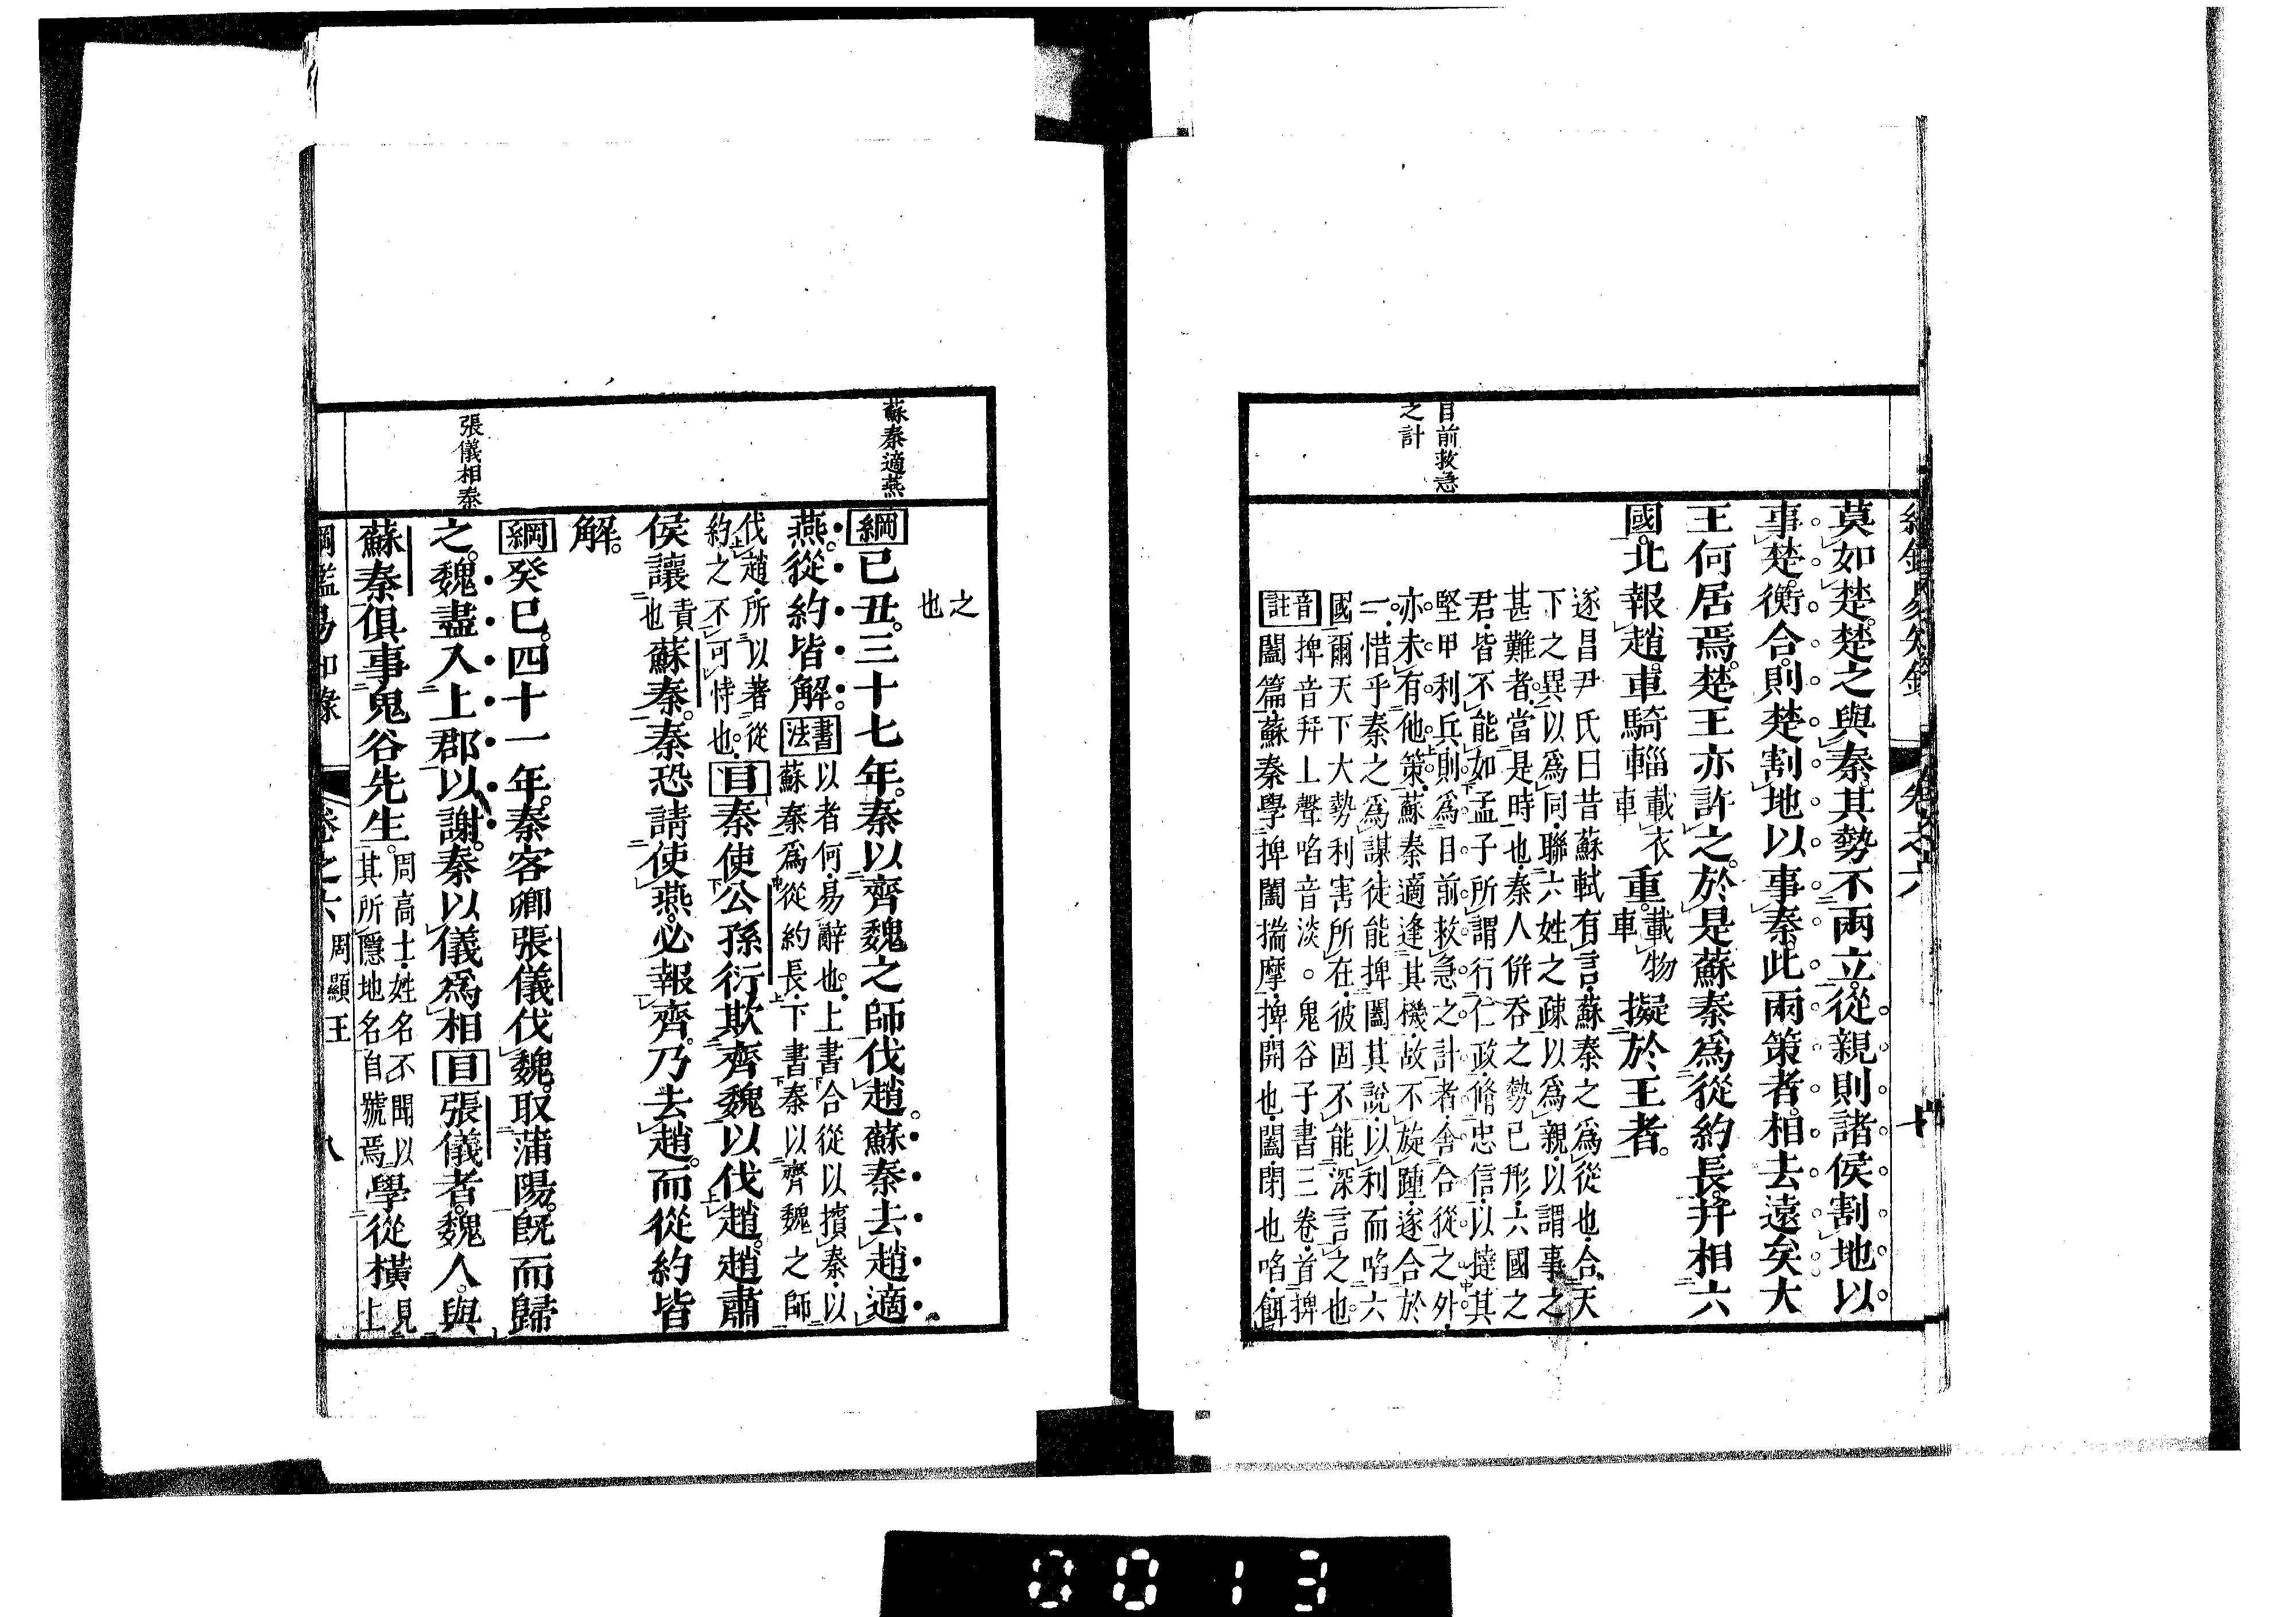 莫如楚。楚之與秦。其勢不兩立。從親則諸侯割地以
事楚。衡合。則楚割地以事秦。此兩策者。相去遠矣。大
王何居焉。楚王亦許之。於是蘇秦爲從約長。幷相六
國。北報趙。車騎輜載衣車重。載物車擬於王者。
目前救急
之計
遂昌尹氏曰昔蘇軾有言蘇秦之爲從也合天
下之異以爲同聯六姓之疎以爲親以謂事之
甚難者當是時也秦人倂吞之勢已形六國之
君皆不能如孟子所謂行仁政脩忠信以撻其
堅甲利兵則爲目前救急之計者舍合從之外
亦未有他策蘇秦適逢其機故不旋踵遂合於
一惜乎秦之爲謀徒能捭闔其說以利而啗六
國爾天下大勢利害所在彼固不能深言之也
音註
捭音拜上聲啗音淡。鬼谷子書三卷音捭
闔篇蘇秦學捭闔揣摩捭開也闔閉也啗餌
之
也
蘇秦適燕
綱己丑。三十七年。秦以齊魏之師伐趙。蘇秦去趙適
燕。從約皆解。
書法
以者何易辭也上書合從以擯秦以
蘇秦爲從約長下書秦以齊魏之師
伐趙所以著從
約之不可恃也
目秦使公孫衍欺齊魏以伐趙。趙肅
侯讓責也蘇秦。秦恐請使燕。必報齊。乃去趙。而從約皆
解。
張儀相秦
綱癸巳。四十一年。秦客卿張儀伐魏。取蒲陽。旣而歸
之。魏盡入上郡以謝。秦以儀爲相目張儀者。魏人。與
蘇秦俱事鬼谷先生。
周高士姓名不聞以
其所隱地名自號焉
學從橫
見
上
綱鑑易知錄 卷之六 周顯王 八
0013